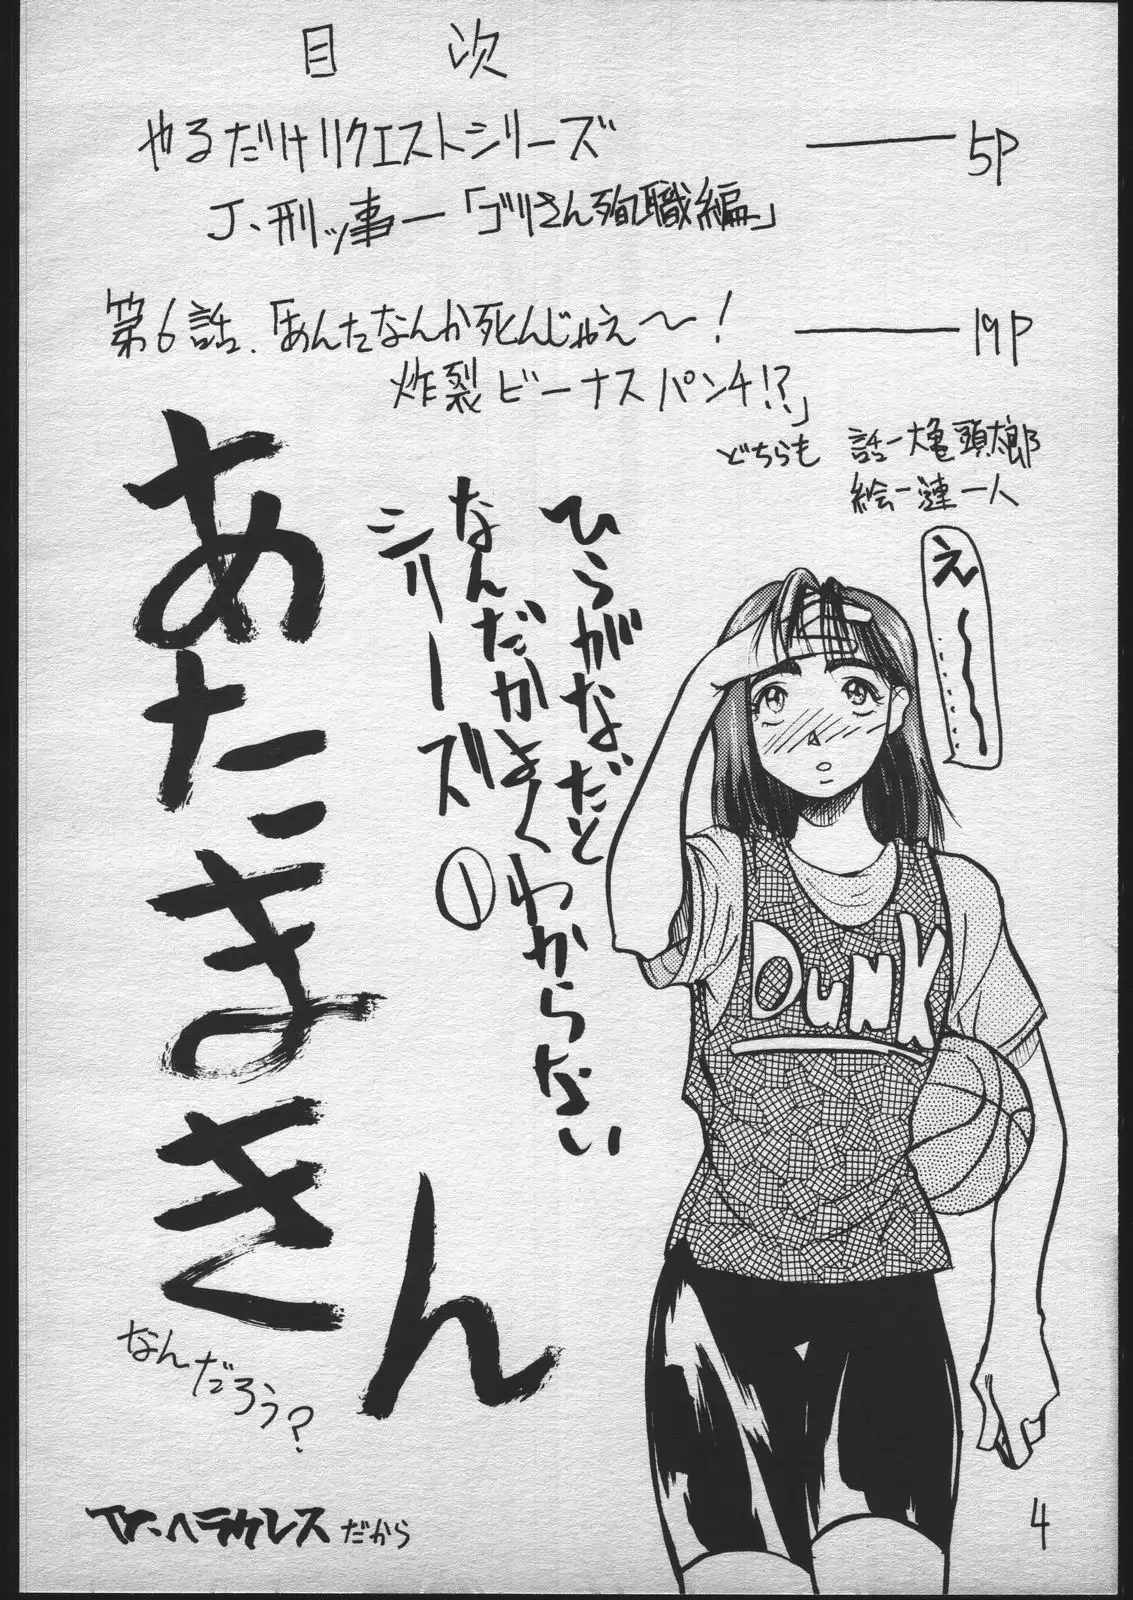 目 次
やるだけリクエストシリーズ ―― 5P
J、刑ッ事―「ゴリさん殉職編」
第6話、「あんたなんか死んじゃえ〜! ―― 19P
炸裂ビーナスパンチ!?」
どちらも 話―大亀頭太郎
絵―漣一人
え〜……
ひらがなだと
なんだかよくわからない
シリーズ①
あたまきん
なんだろう?
Tr.ヘラクレスだから
DUNK
4